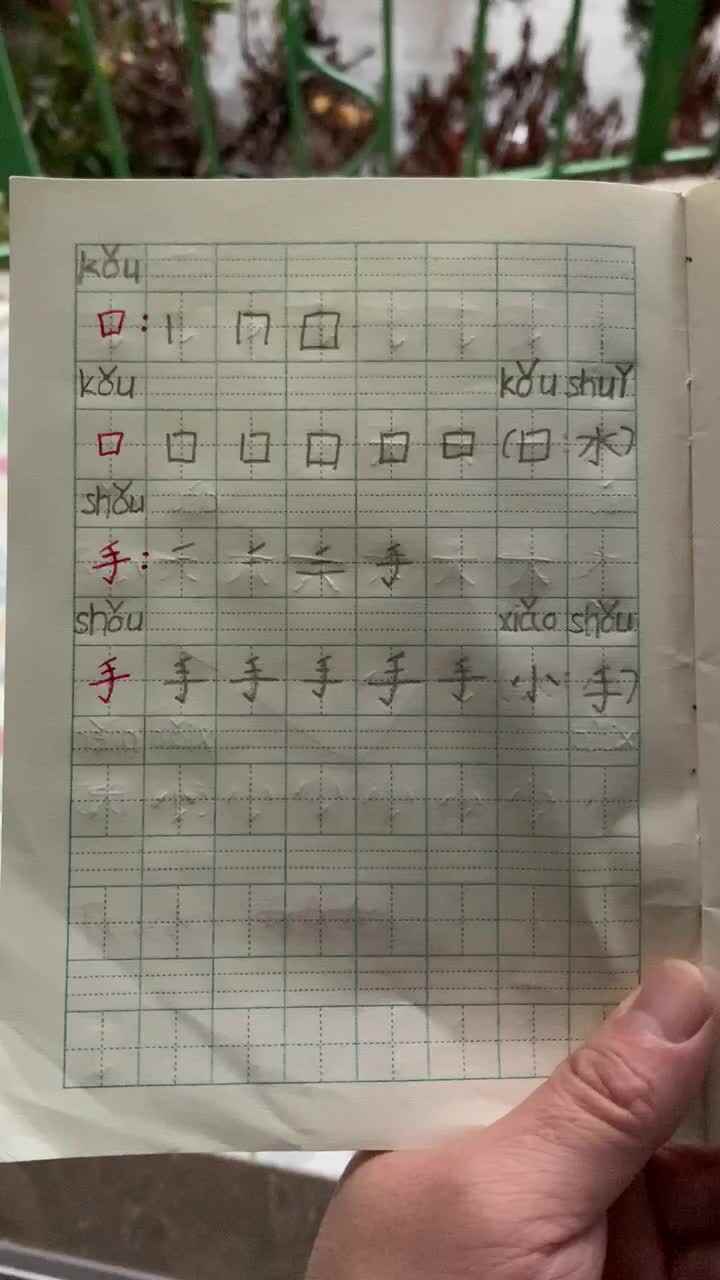 kǒu
口: 丨 冂 口
kǒu kǒu shuǐ
口 口 口 口 口 口 (口 水)
shǒu
手: 一 二 三 手
shǒu xiǎo shǒu
手 手 手 手 手 手 小 手)